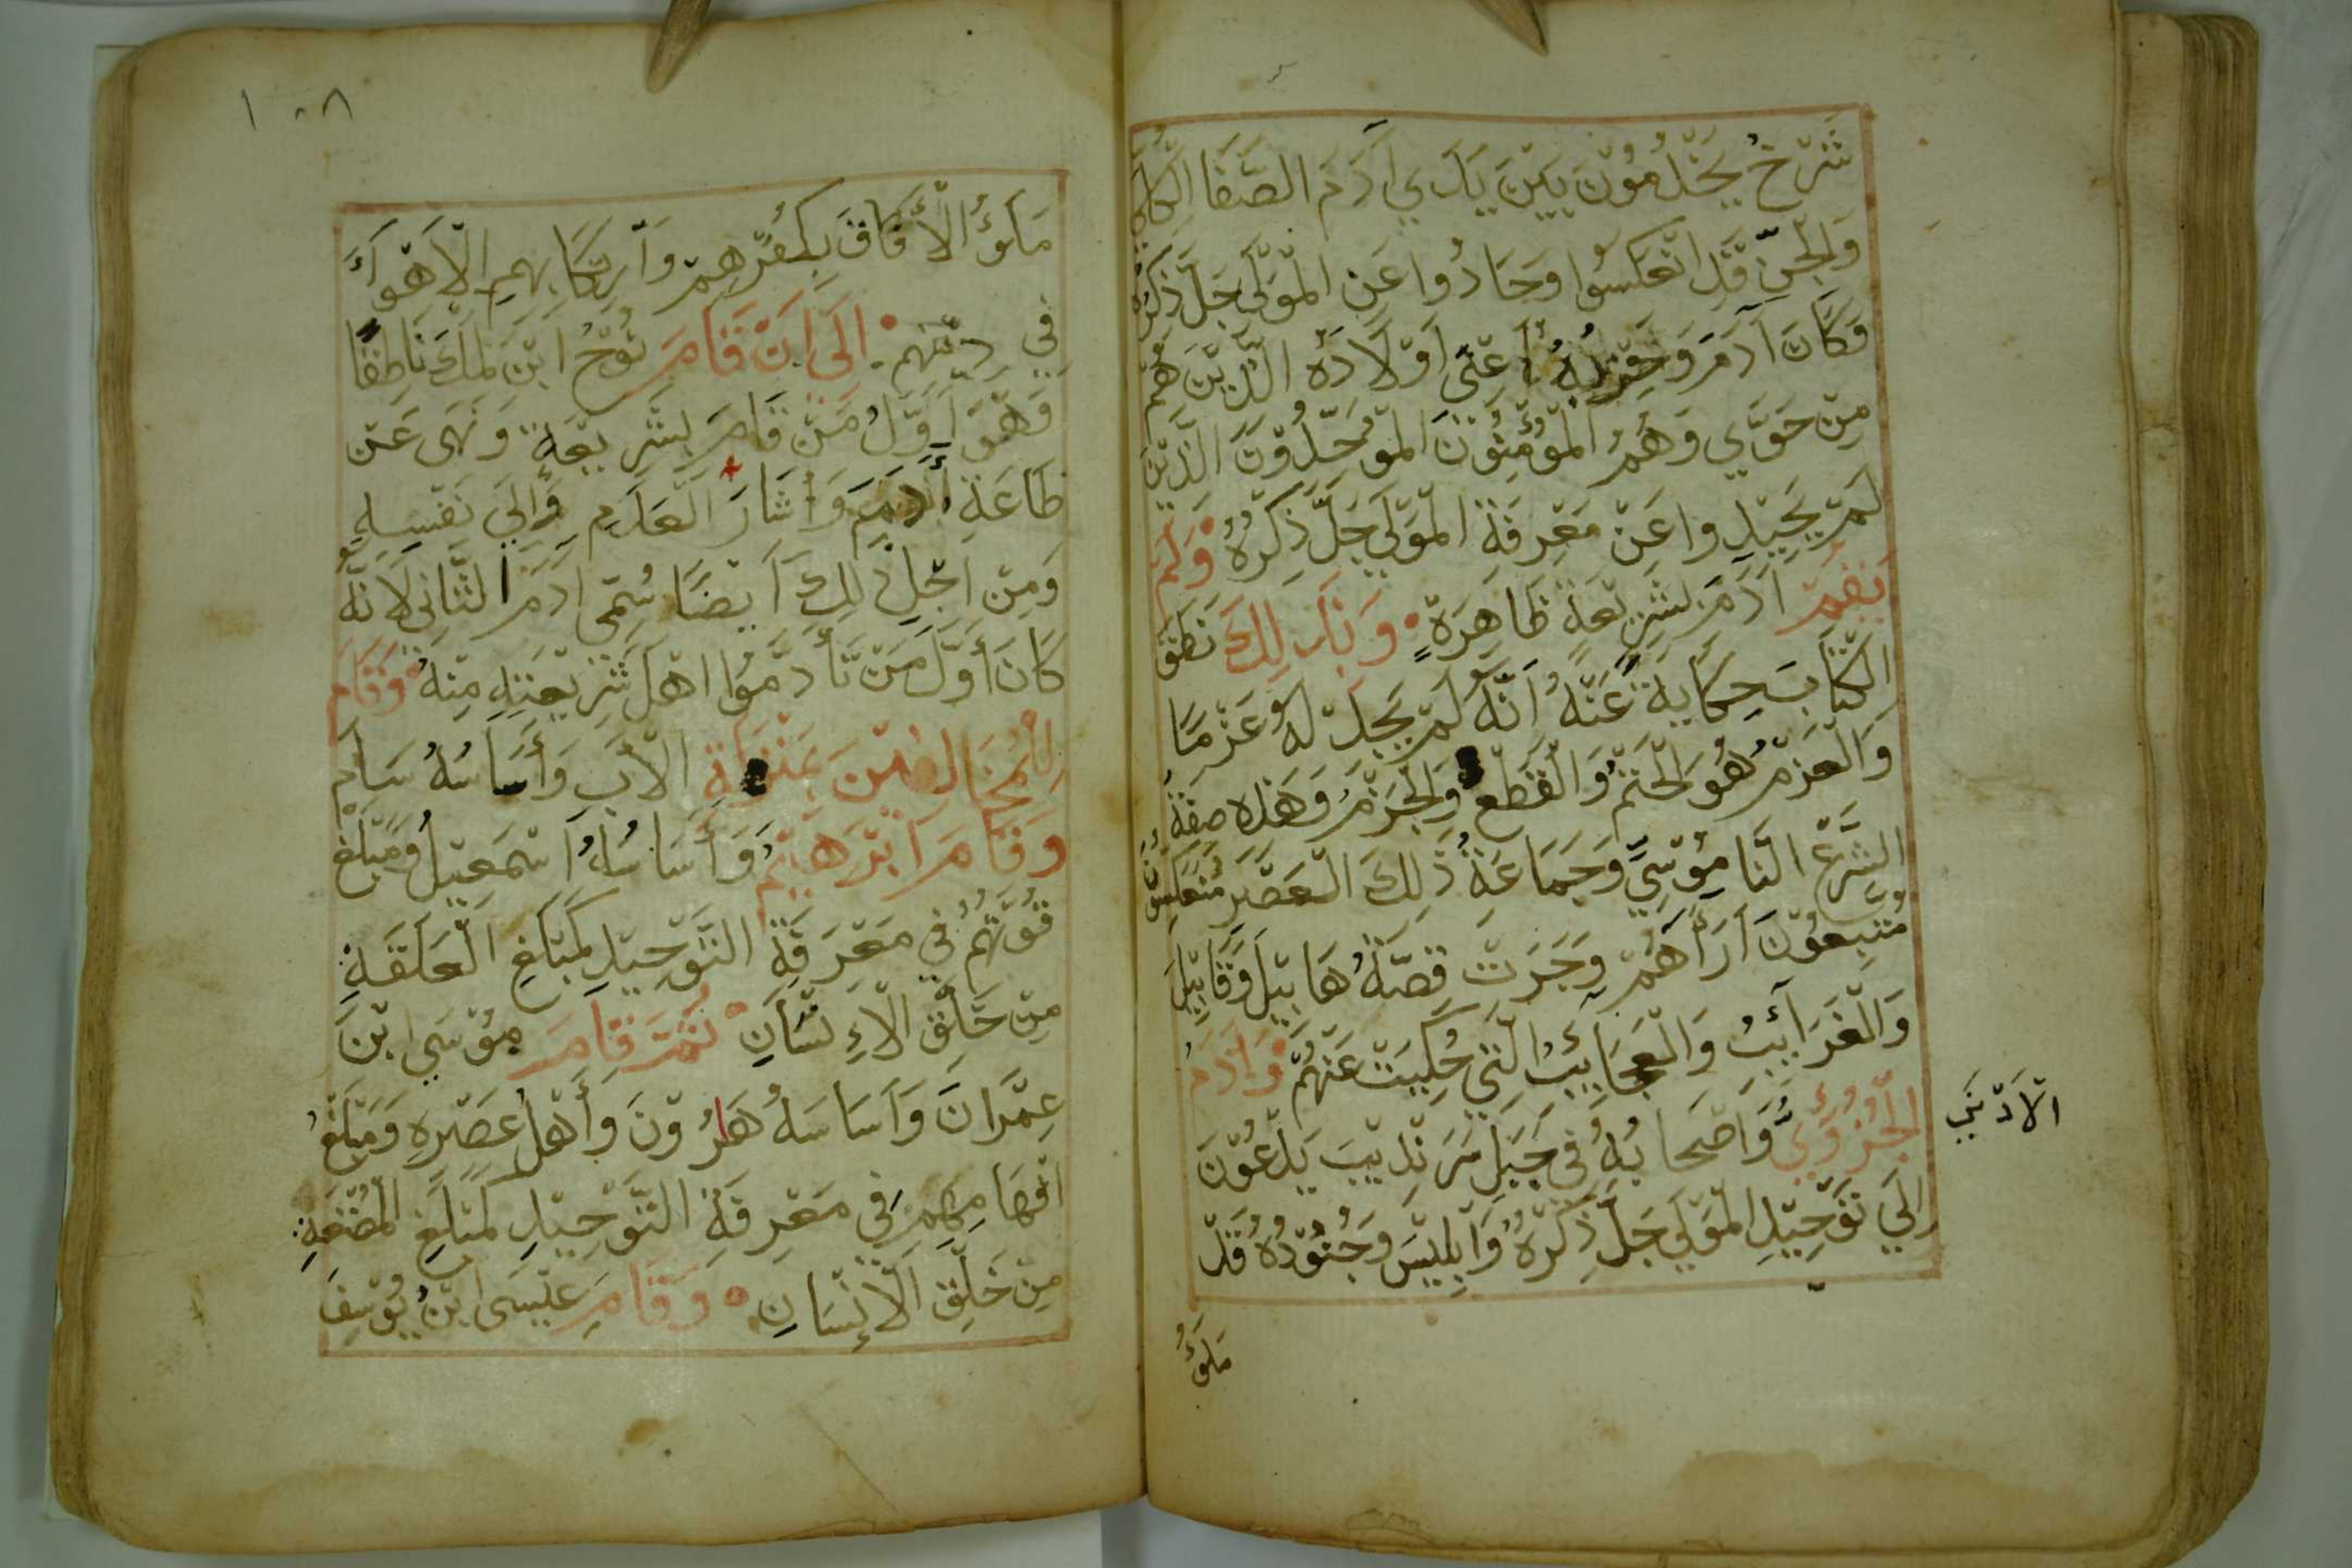 شَرْخُ يَخْدُمُوْنَ بَيْنَ يَدَي آدَمَ الصَّفَا الكُلِّي
وَالجِنِّ قَدِ انْعَكَسُوا وَحَادُوا عَنِ الْمَوْلَى جَلَّ ذِكْرُهُ
وَكَانَ آدَمَ وَحِزْبُهُ أَعْنَى اَوْلَادَهُ الَّذِيْنَ هُمْ
مِنْ حَوَّي وَهُمُ الْمُؤْمِنُوْنَ الْمُوَحِّدُوْنَ الَّذِيْنَ
لَمْ يَحِيْدُوا عَنْ مَعْرِفَةِ الْمَوْلَى جَلَّ ذِكْرُهُ وَلَمْ
يَقُمْ آدَمَ بِشَرِيْعَةٍ ظَاهِرَةٍ وَبِذَلِكَ نَطَقَ
الكِتَابَ حِكَايَةً عَنْهُ اَنَّهُ لَمْ يَجِدْ لَهُ عَزْمًا
وَالْعَزْمُ هُوَ الحَتْمُ وَالْقَطْعُ وَالْجَزْمُ وَهَذِهِ صِفَةُ
الشَّرْعِ النَّامُوْسِيِّ وَجَمَاعَةُ ذَلِكَ الْعَصْرِ مُنْعَكِسُوْنَ
مُتَّبِعُوْنَ آرَآهُمْ وَجَرَتْ قِصَّةُ هَابِيْلَ وَقَابِيْلَ
وَالْغَرَآئِبُ وَالْعَجَايِبُ الَّتِي حُكِيَتْ عَنْهُمْ وَآدَمُ
الْجُزْوِيُّ وَاَصْحَابُهُ فِي جَبَلِ سَرَنْدِيْبَ يَدْعُوْنَ
اِلَى تَوْحِيْدِ الْمَوْلَى جَلَّ ذِكْرُهُ وَاِبْلِيْسَ وَجُنُوْدُهُ قَدْ
مَلَؤُ
الاَدْنَي
١٠٨
مَلَؤُ الْأَفَاقَ بِكُفْرِهِمْ وَاَرْتِكَابِهِمِ الْاَهْوَآءَ
فِي دِيْنِهِمْ اِلَى اَنْ قَامَ نُوْحُ ابْنَ لَمَكَ نَاطِقًا
وَهُوَ اَوَّلُ مَنْ قَامَ بِشَرِيْعَةٍ وَنَهَى عَنْ
طَاعَةِ أَدَمَ وَاَشَارَ الْعَدَمِ وَإِلَى نَفْسِهِ
وَمِنْ اَجْلِ ذَلِكَ اَيْضًا سُمِّيَ آدَمَ الثَّانِي لِاَنَّهُ
كَانَ أَوَّلَ مَنْ تَأَدَّمُوْا اَهْلَ شَرِيْعَتِهِ مِنْهُ وَقَامَ
لِلْمُخَالِفِيْنَ بِمَنْزِلَةِ الْأَبِ وَأَسَاسُهُ سَامْ
وَقَامَ اَبْرَهِيْمُ وَأَسَاسُهُ اَسْمَعِيْلُ وَمَبْلَغُ
قُوَّتُهُمْ فِي مَعْرِفَةِ التَّوْحِيْدِ كَمَبْلَغِ الْعَلَقَةِ
مِنْ خَلْقِ الْاِنْسَانِ ثُمَّ قَامَ مُوْسَى ابْنَ
عِمْرَانَ وَاَسَاسَهُ هَرُوْنَ وَأَهْلُ عَصْرِهِ وَمَبْلَغُ
اَفْهَامِهِمْ فِي مَعْرِفَةِ التَّوْحِيْدِ كَمَبْلَغِ الْمُضْغَةِ
مِنْ خَلْقِ الْاِنْسَانِ وَقَامَ عِيْسَى ابْنُ يُوْسِفَ